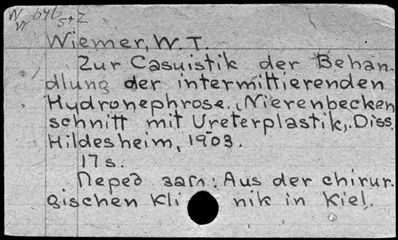 W 646
W S+Z
Wiemer, W. T.
Zur Casuistik der Behan-
dlung der intermittierenden
Hydronephrose. (Nierenbecken
schnitt mit Ureterplastik). Diss.
Hildesheim, 1903.
17 s.
Перед загл: Aus der chirur-
gischen Kli nik in Kiel.